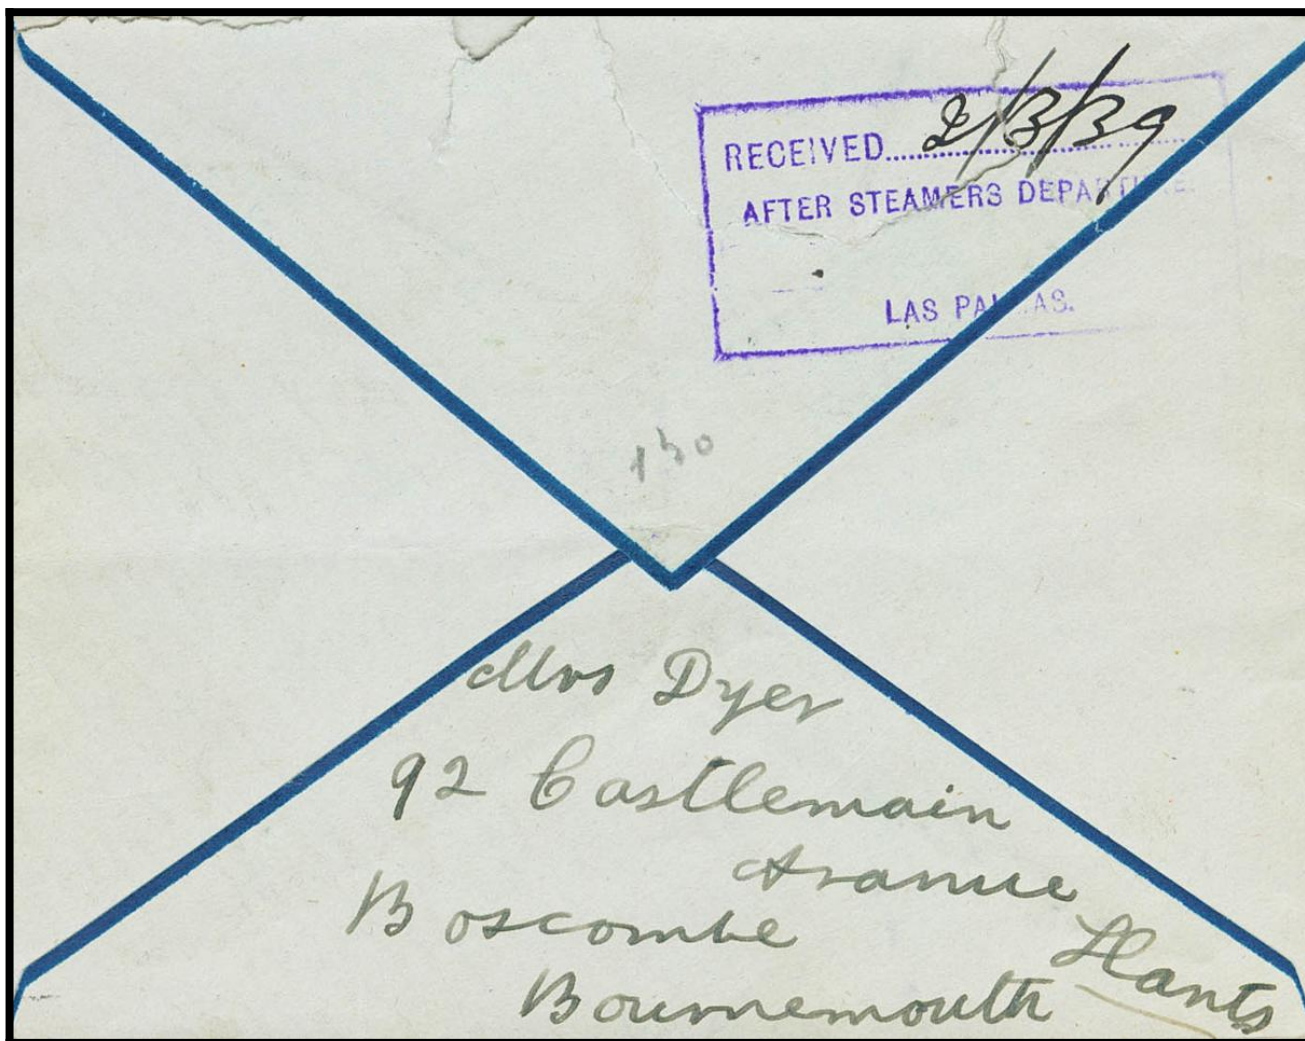 RECEIVED 2/3/39
AFTER STEAMERS DEPARTURE
LAS PALMAS.
130
Mrs Dyer
92 Castlemain
Avanue
Boscombe
Bournemouth Hants